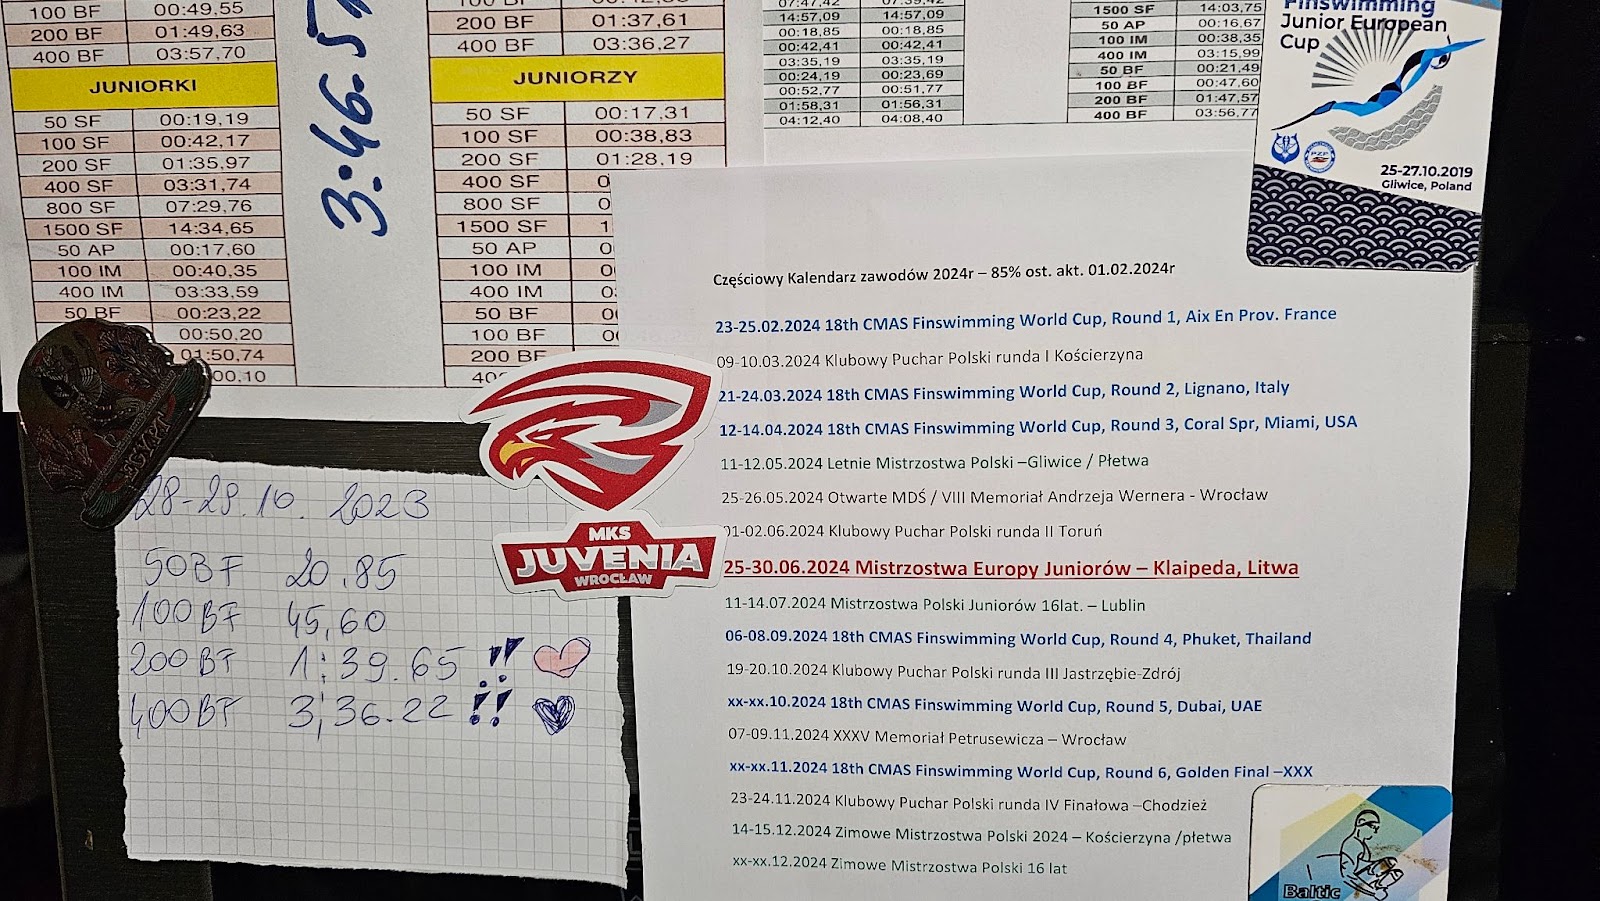 100 BF 00:49,55
200 BF 01:49,63
400 BF 03:57,70
JUNIORKI
50 SF 00:19,19
100 SF 00:42,17
200 SF 01:35,97
400 SF 03:31,74
800 SF 07:29,76
1500 SF 14:34,65
50 AP 00:17,60
100 IM 00:40,35
400 IM 03:33,59
50 BF 00:23,22
00:50,20
01:50,74
00,10
3:46.51
100 BF
200 BF 01:37,61
400 BF 03:36,27
JUNIORZY
50 SF 00:17,31
100 SF 00:38,83
200 SF 01:28,19
400 SF 0
800 SF 0
1500 SF 1
50 AP 0
100 IM 0
400 IM 0
50 BF 0
100 BF 0
200 BF
40
07:47,42 07:39,42
14:57,09 14:57,09
00:18,85 00:18,85
00:42,41 00:42,41
03:35,19 03:35,19
00:24,19 00:23,69
00:52,77 00:51,77
01:58,31 01:56,31
04:12,40 04:08,40
1500 SF 14:03,75
50 AP 00:16,67
100 IM 00:38,35
400 IM 03:15,99
50 BF 00:21,49
100 BF 00:47,60
200 BF 01:47,57
400 BF 03:56,77
Finswimming
Junior European
Cup
PZP
25-27.10.2019
Gliwice, Poland
Częściowy Kalendarz zawodów 2024r – 85% ost. akt. 01.02.2024r
23-25.02.2024 18th CMAS Finswimming World Cup, Round 1, Aix En Prov. France
09-10.03.2024 Klubowy Puchar Polski runda I Kościerzyna
21-24.03.2024 18th CMAS Finswimming World Cup, Round 2, Lignano, Italy
12-14.04.2024 18th CMAS Finswimming World Cup, Round 3, Coral Spr, Miami, USA
11-12.05.2024 Letnie Mistrzostwa Polski –Gliwice / Płetwa
25-26.05.2024 Otwarte MDŚ / VIII Memoriał Andrzeja Wernera - Wrocław
01-02.06.2024 Klubowy Puchar Polski runda II Toruń
25-30.06.2024 Mistrzostwa Europy Juniorów – Klaipeda, Litwa
11-14.07.2024 Mistrzostwa Polski Juniorów 16lat. – Lublin
06-08.09.2024 18th CMAS Finswimming World Cup, Round 4, Phuket, Thailand
19-20.10.2024 Klubowy Puchar Polski runda III Jastrzębie-Zdrój
xx-xx.10.2024 18th CMAS Finswimming World Cup, Round 5, Dubai, UAE
07-09.11.2024 XXXV Memoriał Petrusewicza – Wrocław
xx-xx.11.2024 18th CMAS Finswimming World Cup, Round 6, Golden Final –XXX
23-24.11.2024 Klubowy Puchar Polski runda IV Finałowa –Chodzież
14-15.12.2024 Zimowe Mistrzostwa Polski 2024 – Kościerzyna /płetwa
xx-xx.12.2024 Zimowe Mistrzostwa Polski 16 lat
EGYPT
MKS
JUVENIA
WROCŁAW
28-29.10. 2023
50BF 20.85
100BF 45,60
200BF 1:39.65 !!
400BF 3:36.22 !!
Baltic